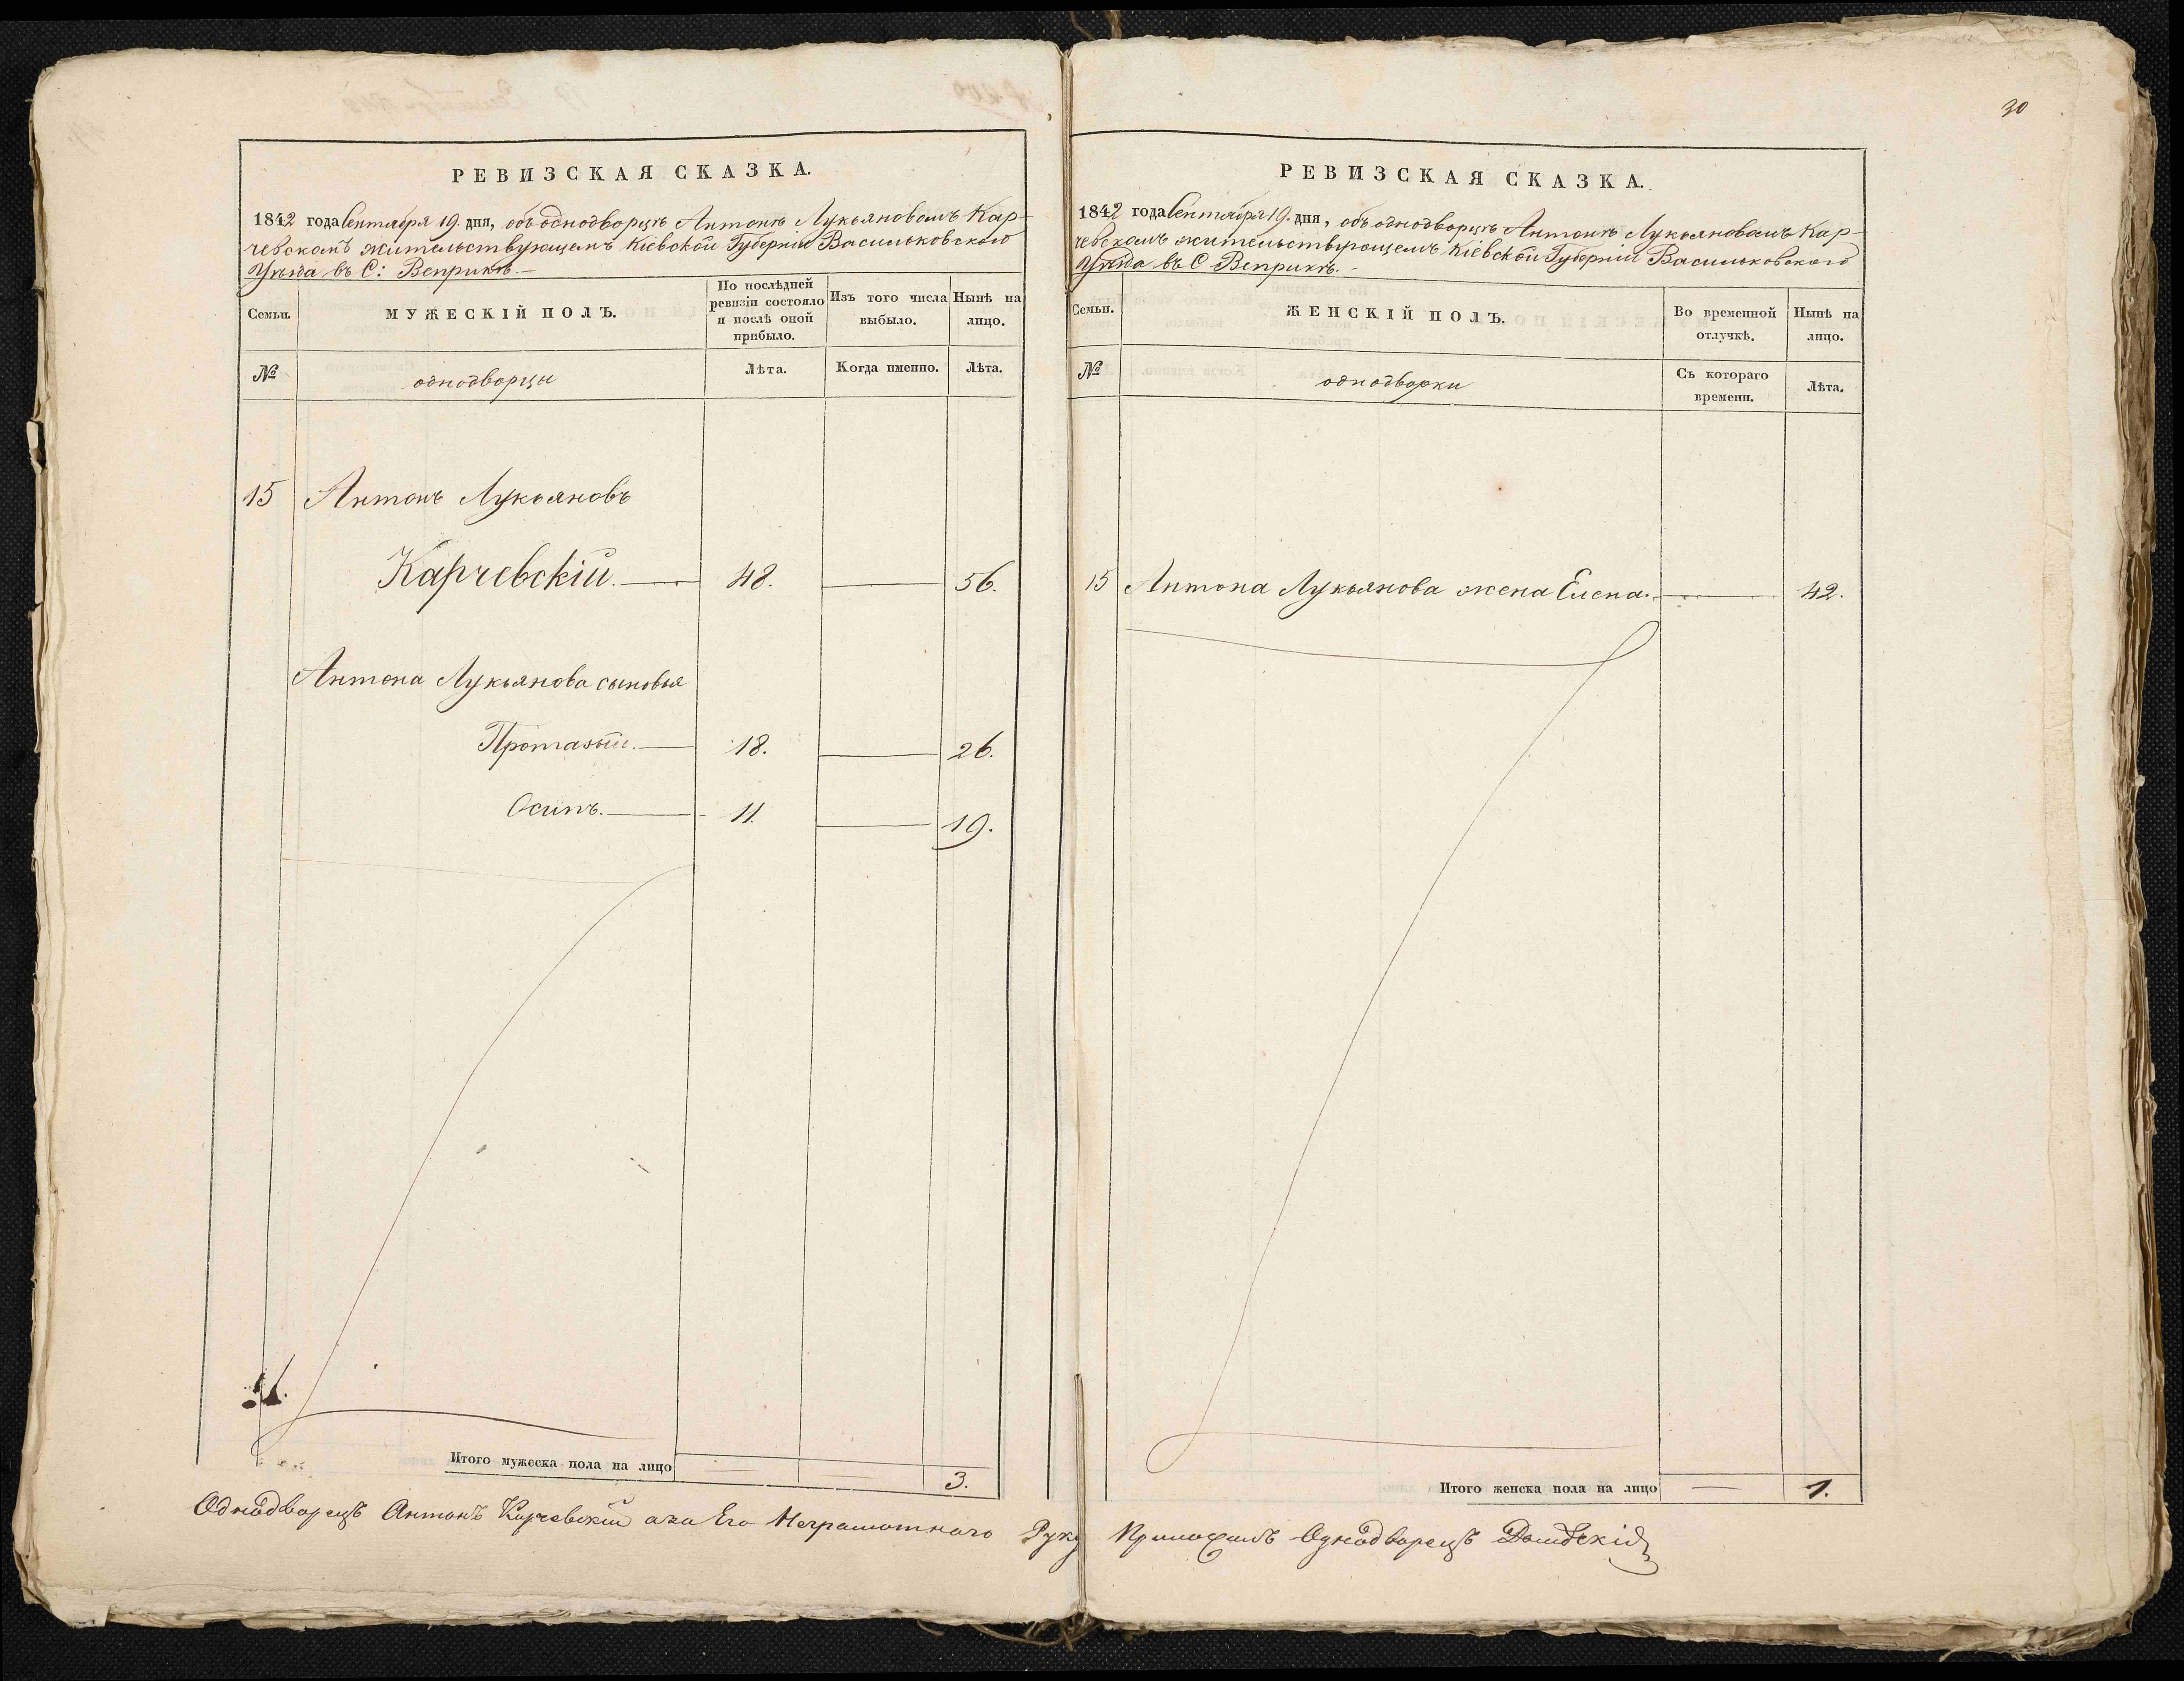 30
РЕВИЗСКАЯ СКАЗКА.
1842 года Сентября 19. дня, объ однодворцѣ Антонѣ Лукьяновомъ Кар-
чевскомъ жительствующемъ Кіевской Губерніи Васильковского
Уѣзда въ С: Веприкѣ.—
Семьи.
МУЖЕСКІЙ ПОЛЪ.
По послѣдней ревизіи состояло и послѣ оной прибыло.
Изъ того числа выбыло.
Нынѣ на лицо.
№
однодворцы
Лѣта.
Когда именно.
Лѣта.
15 Антонъ Лукьяновъ
Карчевскій. — 48. — 56.
Антона Лукьянова сыновья
Протазій. — 18. — 26.
Осипъ. — 11. — 19.
Итого мужеска пола на лицо — — 3.
РЕВИЗСКАЯ СКАЗКА.
1842 года Сентября 19. дня, объ однодворцѣ Антонѣ Лукьяновомъ Кар-
чевскомъ жительствующемъ Кіевской Губерніи Васильковского
Уѣзда въ С Веприкѣ.-
Семьи.
ЖЕНСКІЙ ПОЛЪ.
Во временной отлучкѣ.
Нынѣ на лицо.
№
однодворки
Съ котораго времени.
Лѣта.
15 Антона Лукьянова жена Елена. — 42.
Итого женска пола на лицо — 1.
Однодворецъ Антонъ Карчевский аза Его Неграмотного Руку Приложилъ Однодворецъ